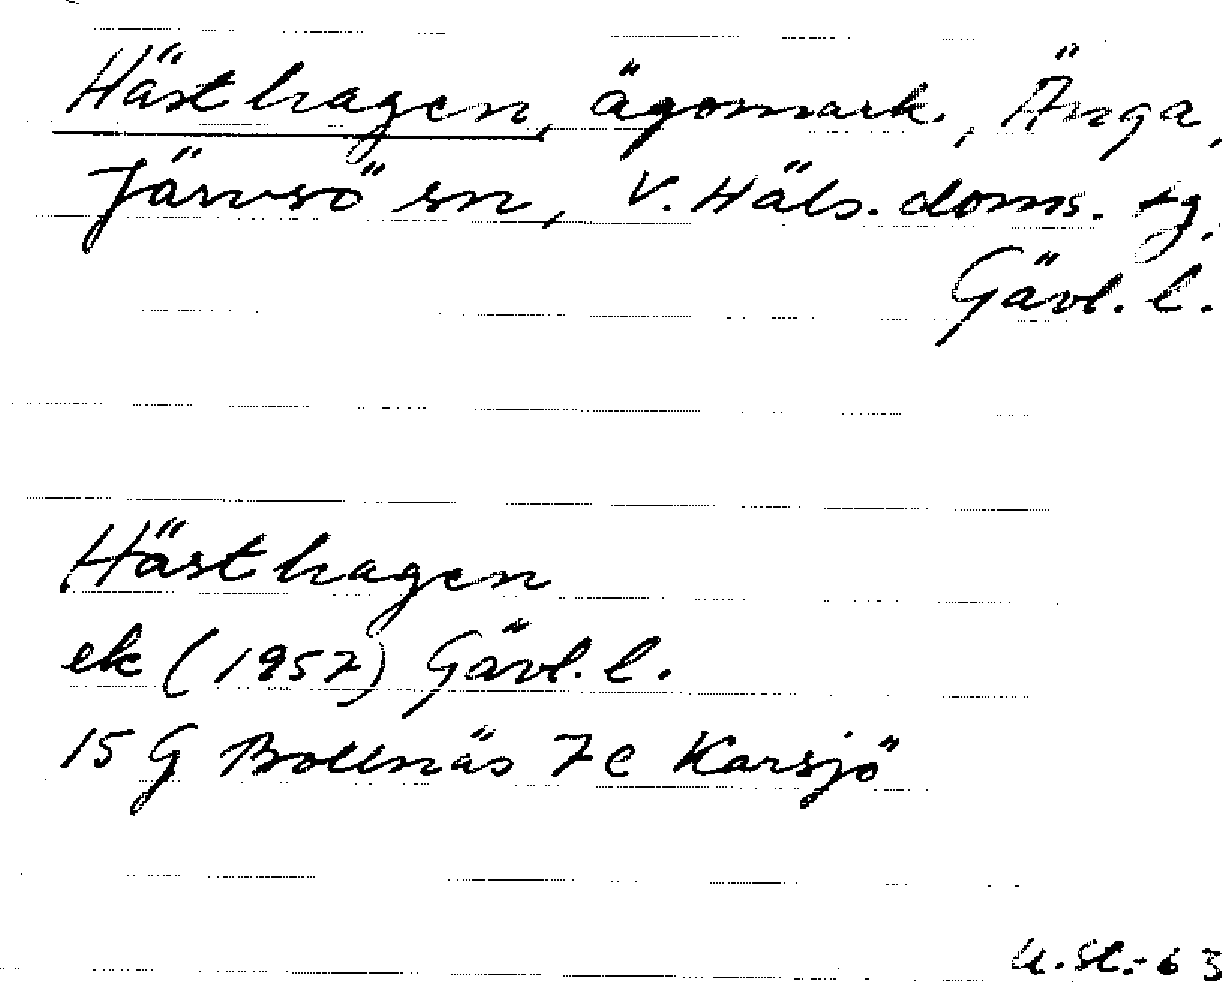 Hästhagen, ägomark., Änga,
Järvsö sn, V. Häls. doms. tg,
Gävl. l.
Hästhagen
ek (1957) Gävl. l.
15 G Bollnäs 7 c Karsjö
U. St.-63